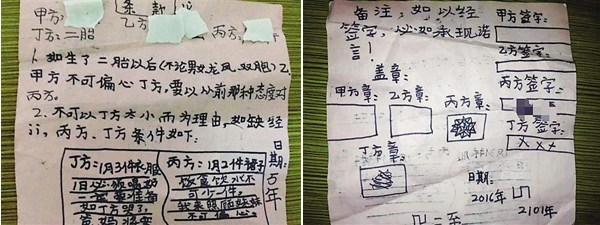 甲方:
条款
乙方:
丙方:
丁方:二胎
1.如生了二胎以后(不论男女龙凤双胞)乙.
甲方不可偏心丁方,要以以前那种态度对
丙方。
2.不可以丁方太小而为理由,如缺经
济,丙方、丁方条件如下:
日期:5年
丁方:1月3件衣服
1日必须喝奶
如丁方哭了,
爸妈
丙方:1月2件裙子
不可偏心。
备注,如以经
签字,必如承现诺
言!
盖章:
甲方章:
乙方章:
丙方章:
丁方章:
甲方签字:
乙方签字:
丙方签字:
丁方签字:
×××
日期:
2016年
2101年